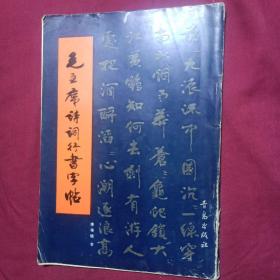 毛主席诗词行书字帖
茫茫九派流中国沉沉一线穿
南烟雨莽苍苍龟蛇锁大
江黄鹤知何去剩有游人
处把酒酹滔滔心潮逐浪高
青岛出版社